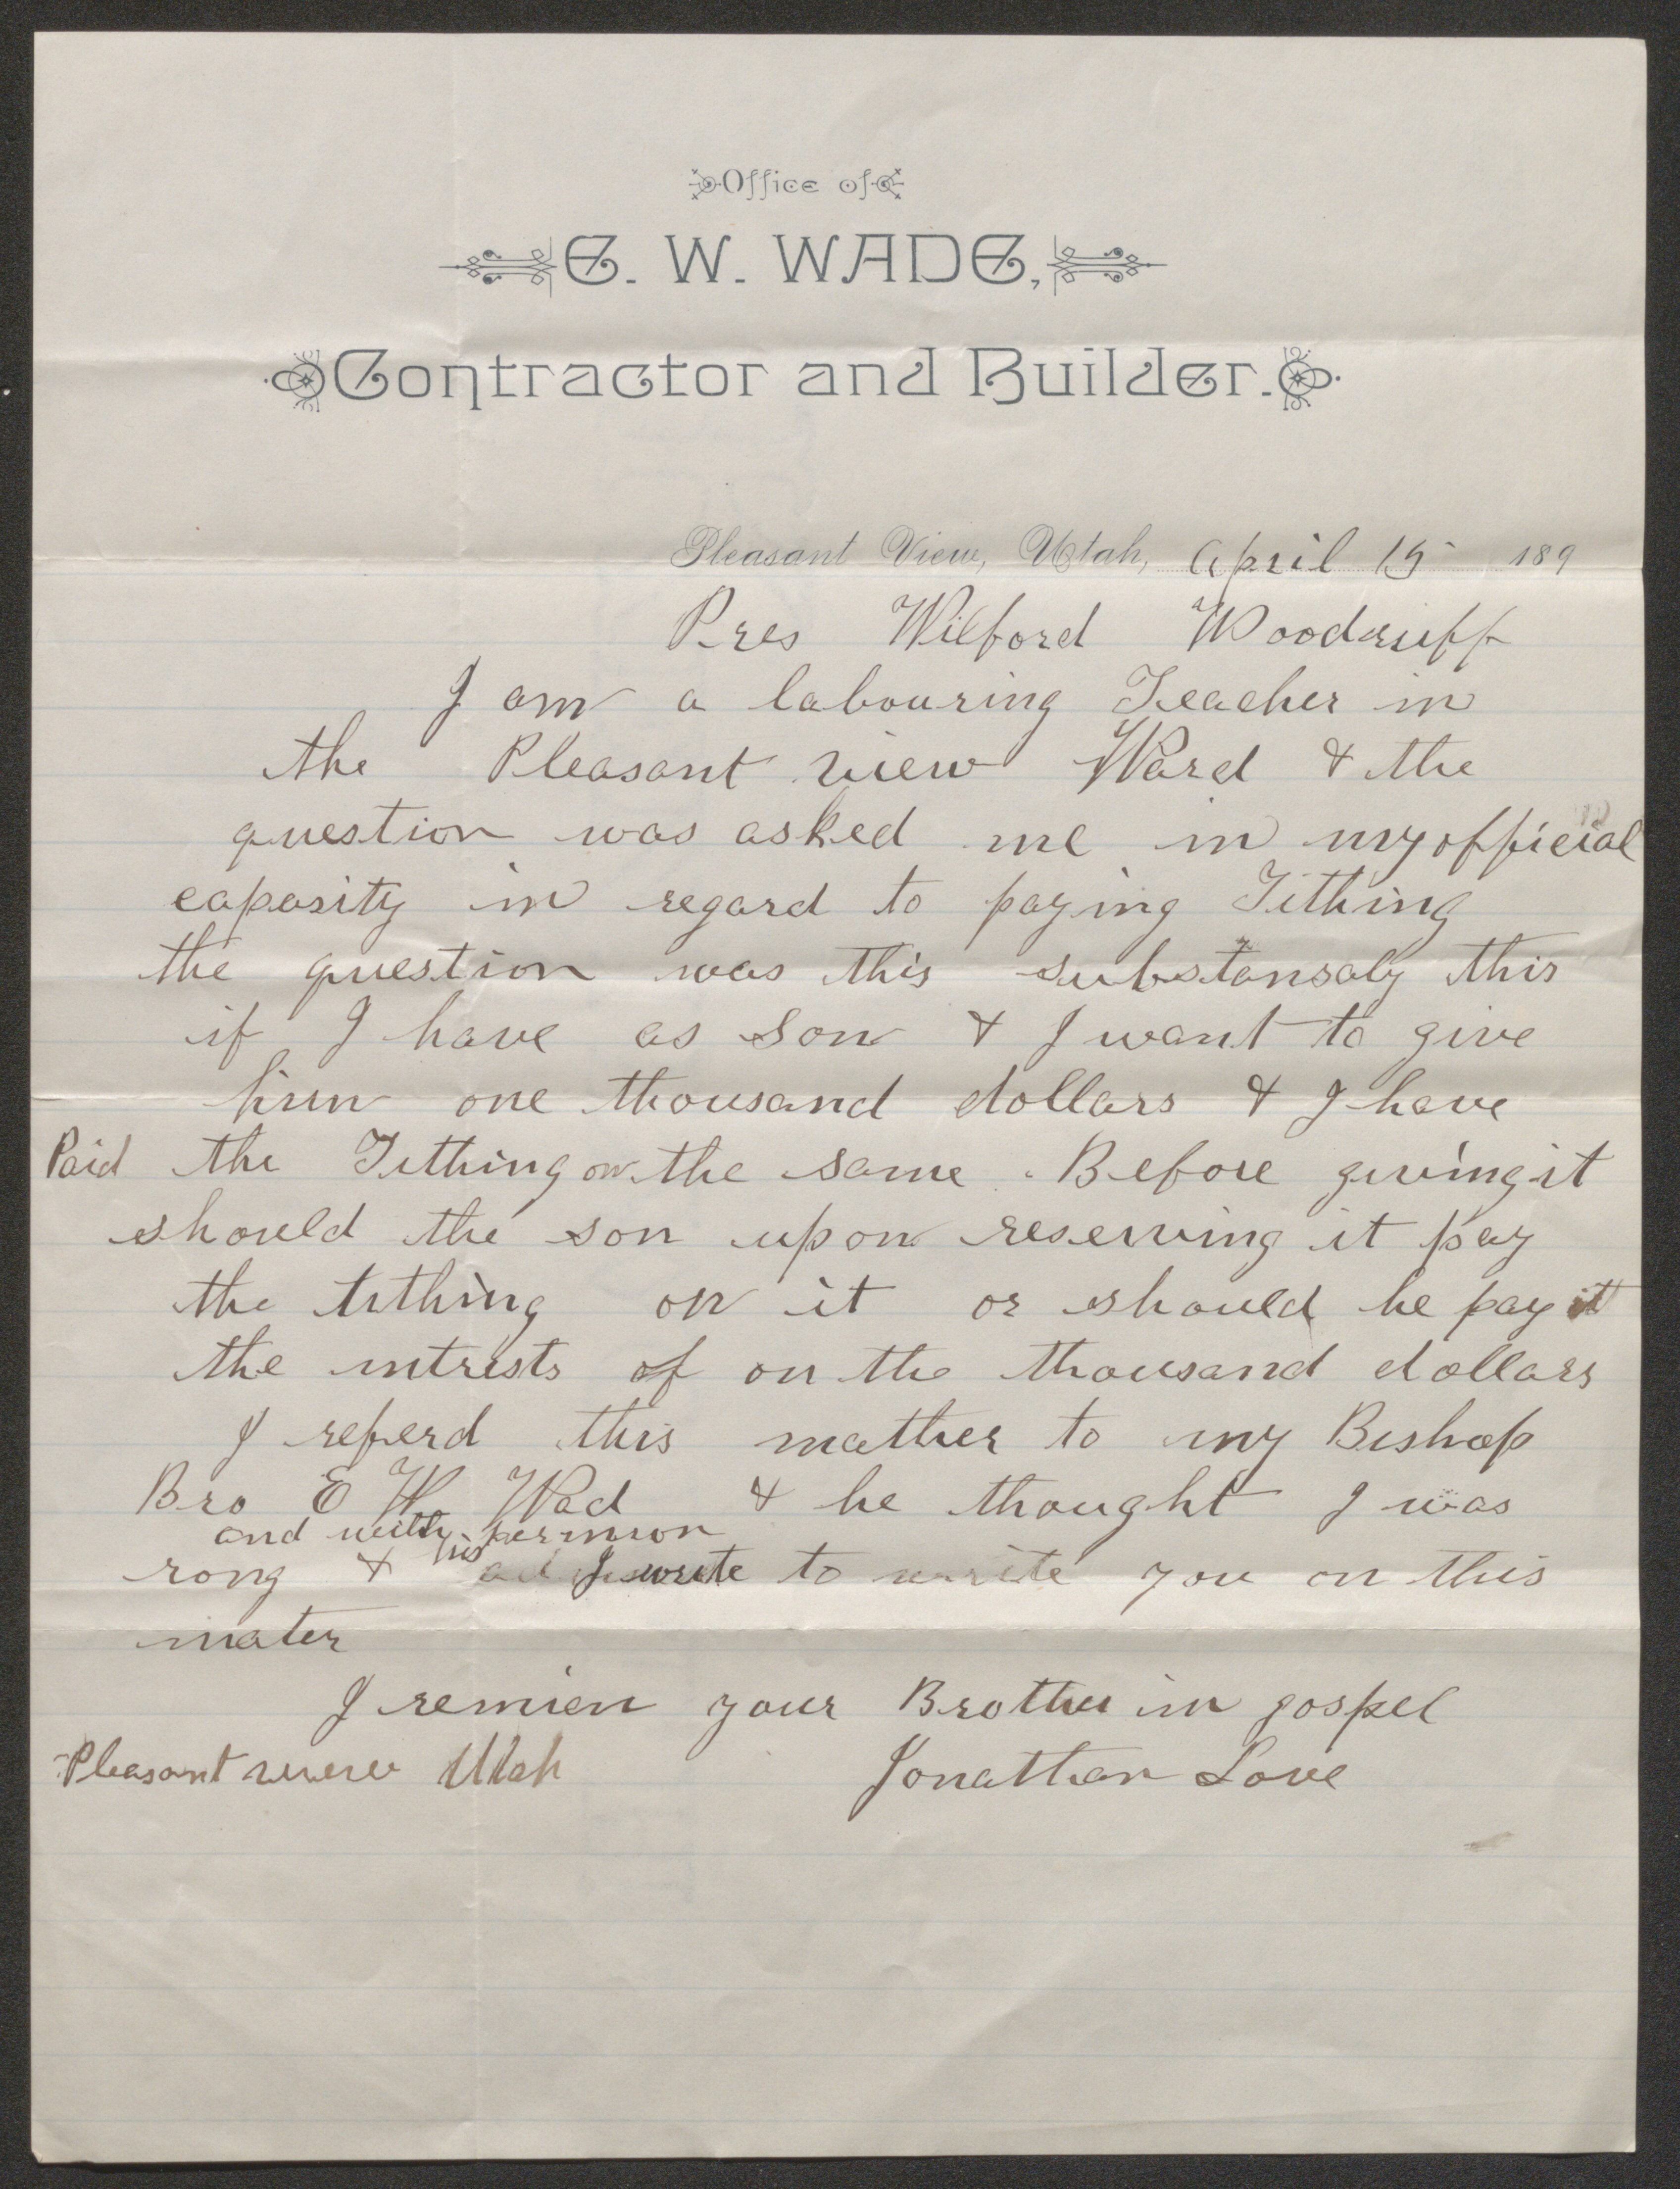 Office of
E. W. WADE,
Contractor and Builder.
Pleasant View, Utah, April 15 189
Pres Wilford Woodruff
I am a labouring Teacher in
the Pleasant view Ward & the
question was asked me in my official
capasity in regard to paying Tithing
the question was this substansaly this
if I have as son & I want to give
him one thousand dollars & I have
Paid the Tithing on the same. Before giving it
should the son upon reserving it pay
the tithing on it or should he pay it
the intrests of on the thousand dollars
I referd this mather to my Bishop
Bro E W Wad & he thought I was
and with his permion
rong & I write to write you on this
mater
I remien your Brother in gospel
Pleasant view Utah Jonathan Love